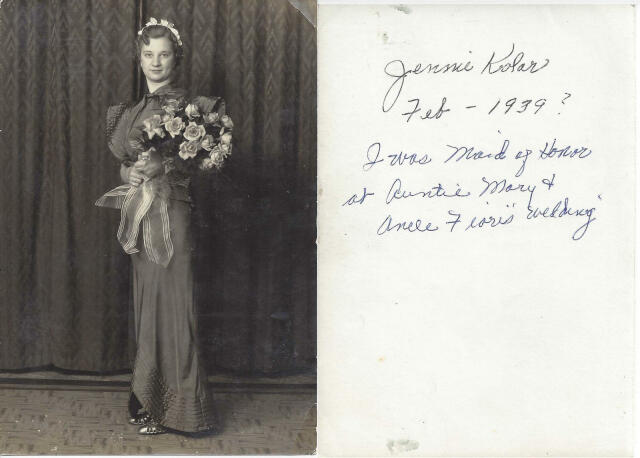 Jennie Kolar
Feb - 1939?
I was Maid of Honor
at Auntie Mary &
Uncle Fiori's wedding